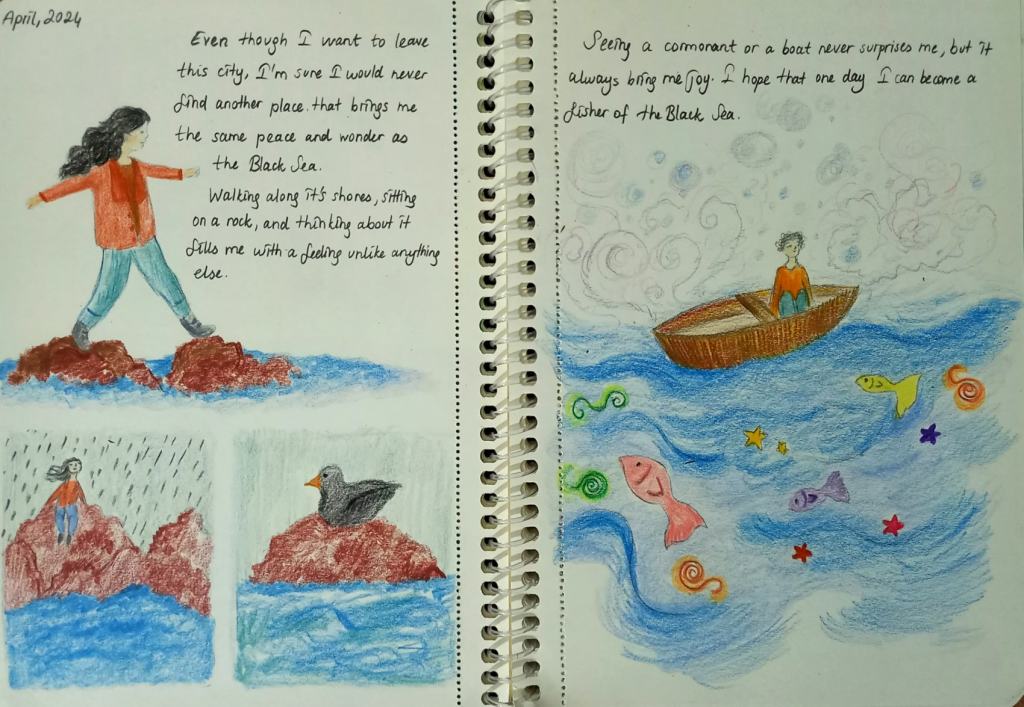 April, 2024
Even though I want to leave
this city, I'm sure I would never
find another place. that brings me
the same peace and wonder as
the Black Sea.
Walking along it's shores, sitting
on a rock, and thinking about it
fills me with a feeling unlike anything
else.
Seeing a cormorant or a boat never surprises me, but it
always bring me joy. I hope that one day I can become a
fisher of the Black Sea.